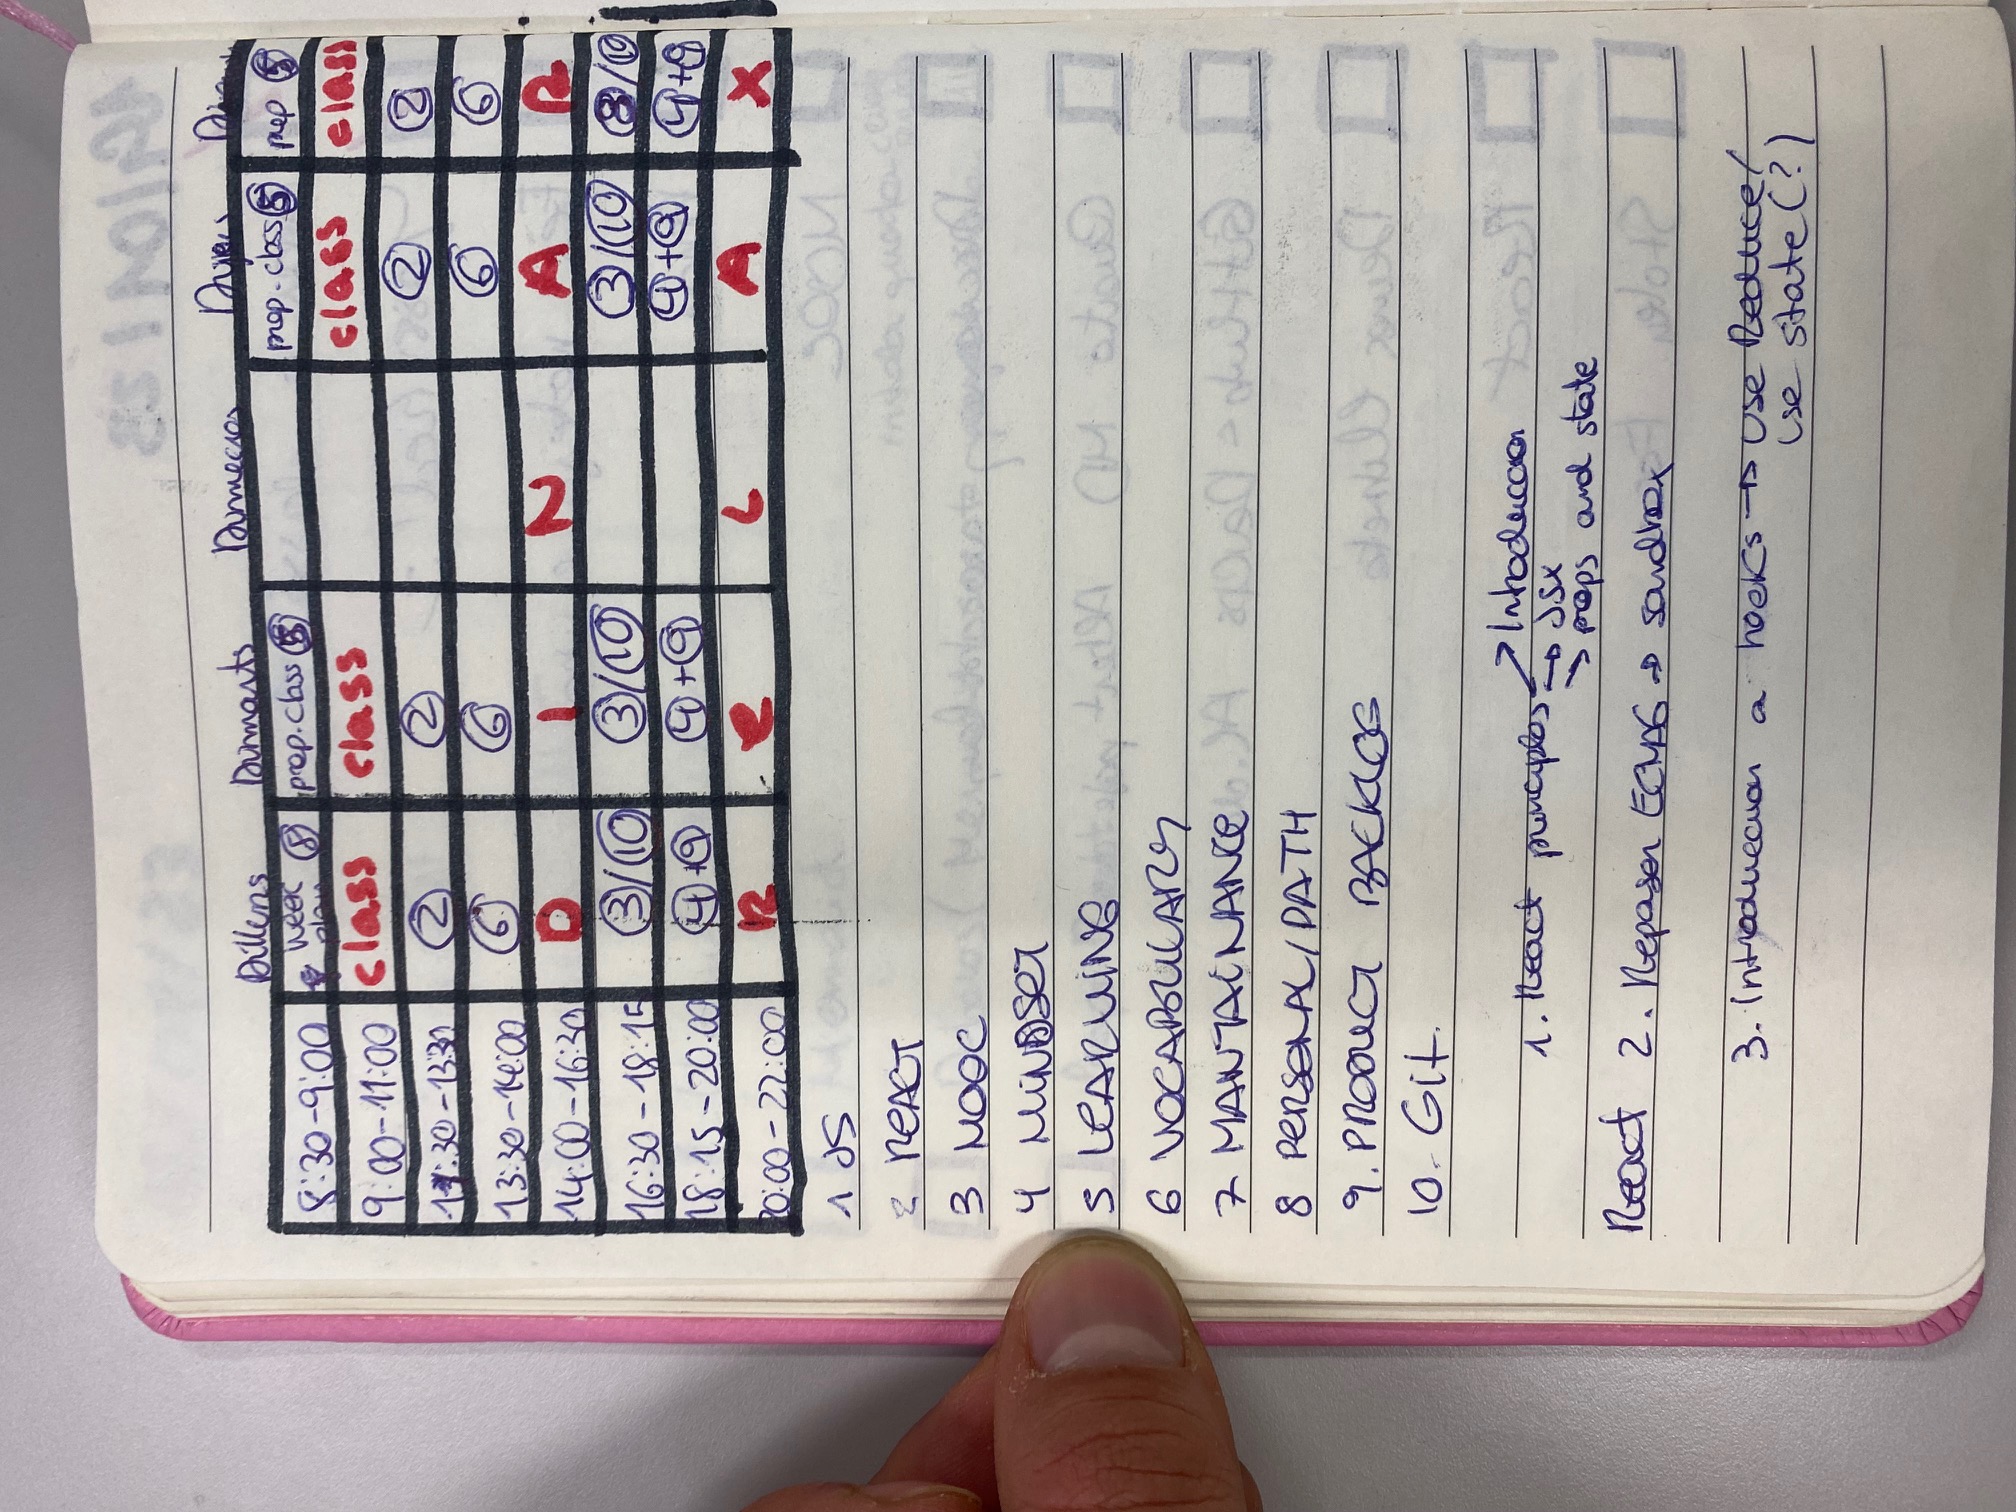 Dillens Dimarts Dimecres Dijous
8:30-9:00 week plan 8 prep. class 5 prep. class 5 prep 5
9:00-11:00 class class class class
11:30-13:30 2 2 2 2
13:30-14:00 6 6 6 6
14:00-16:30 D I N A R
16:30-18:15 3/10 3/10 3/10 3/10
18:15-20:00 4+9 4+9 4+9 4+9
20:00-22:00 R e L A X
1 JS
2 REACT
3 MOOC
4 MINDSET
5 LEARNING
6 VOCABULARY
7 MANTAINANCE
8 PERSONAL/PATH
9. PRODUCT BACKLOG
10. Git.
1. React principles → Introduccion
→ JSX
→ props and state
React 2. Repasar ECMA6 → sandbox
3. Introduccion a hooks → use Reduce/
use state (?)